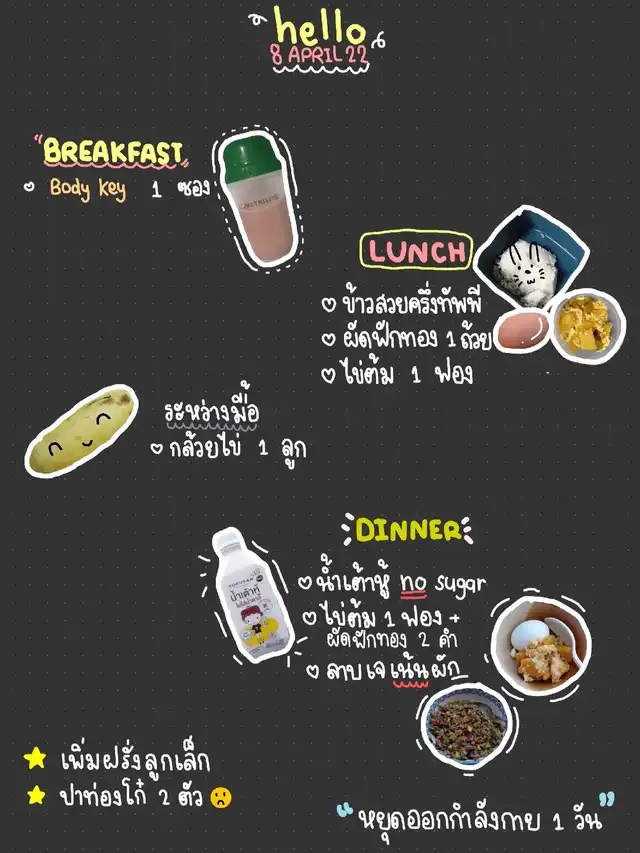 hello
8 APRIL 22
"BREAKFAST"
Body key 1 ซอง
LUNCH
ข้าวสวยครึ่งทัพพี
ผัดฟักทอง 1 ถ้วย
ไข่ต้ม 1 ฟอง
ระหว่างมื้อ
กล้วยไข่ 1 ลูก
DINNER
น้ำเต้าหู้ no sugar
ไข่ต้ม 1 ฟอง +
ผัดฟักทอง 2 คำ
ลาบเจเน้นผัก
TOFUSAN
น้ำเต้าหู้
เพิ่มฝรั่งลูกเล็ก
ปาท่องโก๋ 2 ตัว
"หยุดออกกำลังกาย 1 วัน"